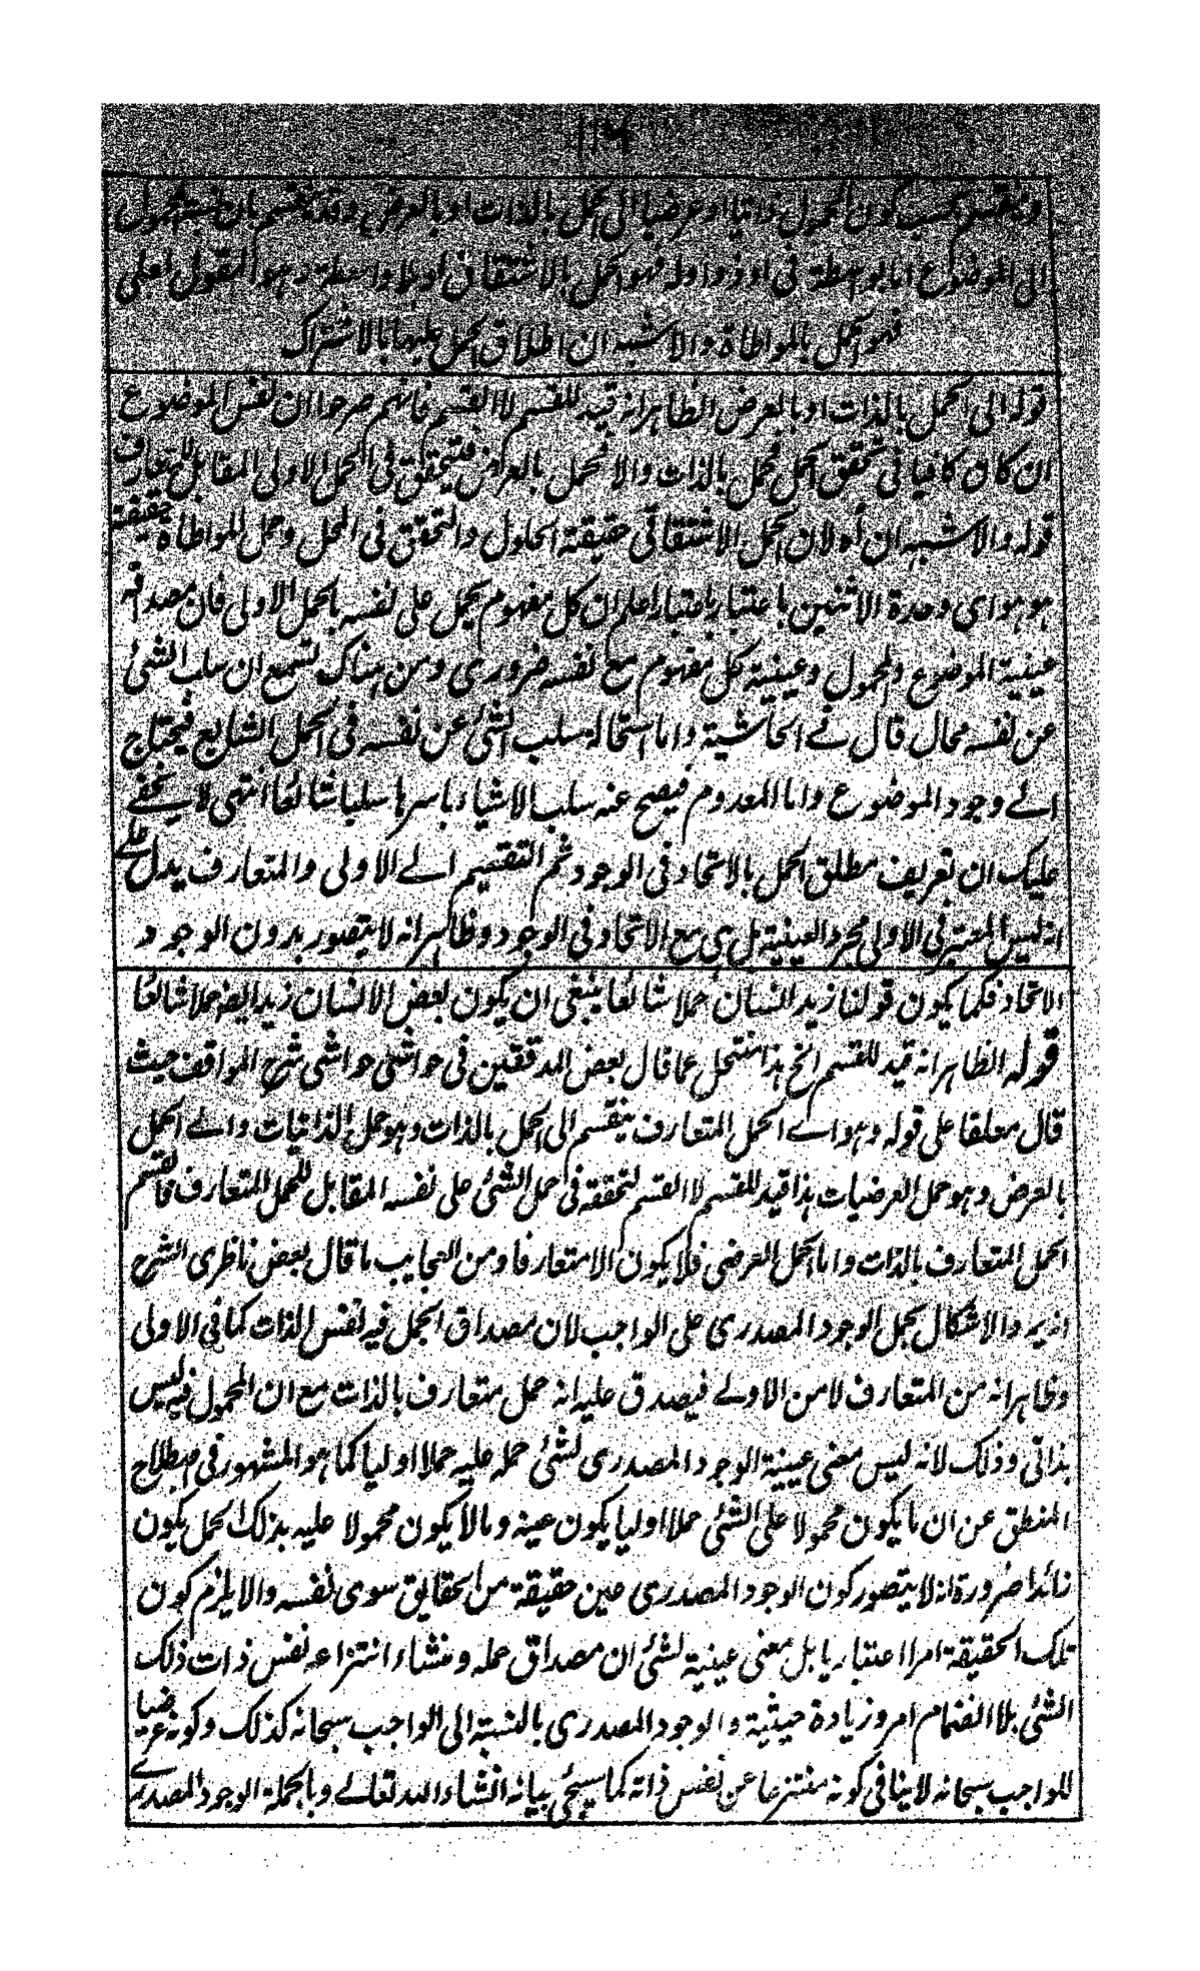 وينقسم بحسب كون المحمول ذاتيا او عرضيا الى الحمل بالذات او بالعرض وقد يقسم بان نسبة المحمول
الى الموضوع اما بواسطة فى او ذو او له فهو الحمل بالاشتقاق او بلا واسطة وهو المقول بعلى
فهو الحمل بالمواطاة والاشبه ان اطلاق الحمل عليهما بالاشتراك
قوله الى الحمل بالذات او بالعرض الظاهر انه قيد للقسم لا القسم فانهم صرحوا ان نفس الموضوع
ان كان كافيا فى تحقق الحمل فحمل بالذات والا فحمل بالعرض فيتحقق فى الحمل الاولى المقابل للمتعارف
قوله والاشبه ان آه لان الحمل الاشتقاقى حقيقة الحلول والتحقق فى المحل وحمل المواطاة حقيقة
هو هو اى وحدة الاثنين باعتبار باعتبار اعلم ان كل مفهوم يحمل على نفسه بالحمل الاولى فان مصداقه
عينية الموضوع والمحمول وعينية كل مفهوم مع نفسه ضرورى ومن هناك تسمع ان سلب الشئ
عن نفسه محال قال فے الحاشية واما استحالة سلب الشئ عن نفسه فى الحمل الشايع فيحتاج
الے وجود الموضوع واما المعدوم فيصح عنه سلب الاشياء باسرها سلبا شائعا انتهى لا يخفے
عليك ان تعريف مطلق الحمل بالاتحاد فى الوجود ثم التقسيم الے الاولى والمتعارف يدل على
انه ليس المعتبر فى الاولى مجرد العينية بل هى مع الاتحاد فى الوجود وظاهر انه لا يتصور بدون الوجود
الاتحاد فكما يكون قولنا زيد انسان حملا شائعا ينبغى ان يكون بعض الانسان زيد ايضا حملا شائعا
قوله الظاهر انه قيد للقسم الخ هذا منتحل عما قال بعض المدققين فى حواشى حواشى شرح المواقف حيث
قال معلقا على قوله وهو اے الحمل المتعارف ينقسم الى الحمل بالذات وهو حمل الذاتيات والے الحمل
بالعرض وهو حمل العرضيات هذا قيد للقسم لا القسم لتحققه فى حمل الشئ على نفسه المقابل للحمل المتعارف فالقسم
الحمل المتعارف بالذات واما الحمل العرضى فلا يكون الا متعارفا ومن العجايب ما قال بعض ناظرى الشرح
انه يرد الاشكال بحمل الوجود المصدرى على الواجب لان مصداق الحمل فيه نفس الذات كما فى الاولى
وظاهر انه من المتعارف لا من الاولے فيصدق عليه انه حمل متعارف بالذات مع ان المحمول فيه ليس
بذاتى وذلك لانه ليس معنى عينية الوجود المصدرى لشئ حمله عليه حملا اوليا كما هو المشهور فى اصطلاح
المنطق عن ان ما يكون محمولا على الشئ حملا اوليا يكون عينه وما لا يكون محمولا عليه بذلك الحمل يكون
زائدا ضرورة انه لا يتصور كون الوجود المصدرى عين حقيقة من الحقايق سوى نفسه والا يلزم كون
تلك الحقيقة امرا اعتباريا بل معنى عينية لشئ ان مصداق حمله ومنشاء انتزاعه نفس ذات ذلك
الشئ بلا انضمام امر وزيادة حيثية والوجود المصدرى بالنسبة الى الواجب سبحانه كذلك وكونه عرضيا
للواجب سبحانه لا ينافى كونه منتزعا عن نفس ذاته كما سيجئ بيانه انشاء الله تعالے وبالجملة الوجود المصدرے